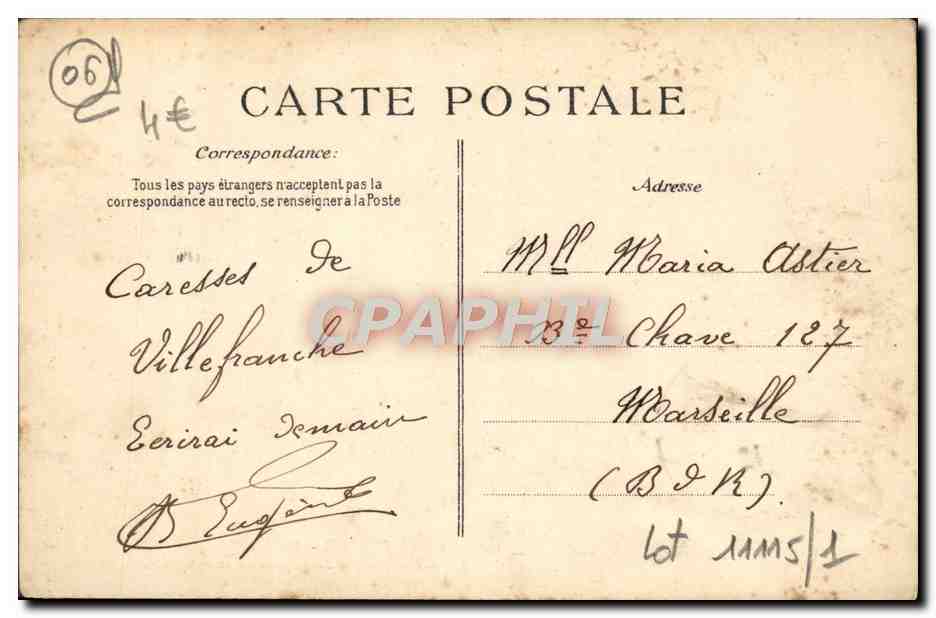 06
4€
CARTE POSTALE
Correspondance:
Tous les pays étrangers n'acceptent pas la
correspondance au recto, se renseigner à la Poste
Caresses de
Villefranche
Ecrirai demain
Eugène
Adresse
Mll Maria Astier
Bd Chave 127
Marseille
(B d R)
lot 11115/1
CPAPHIL